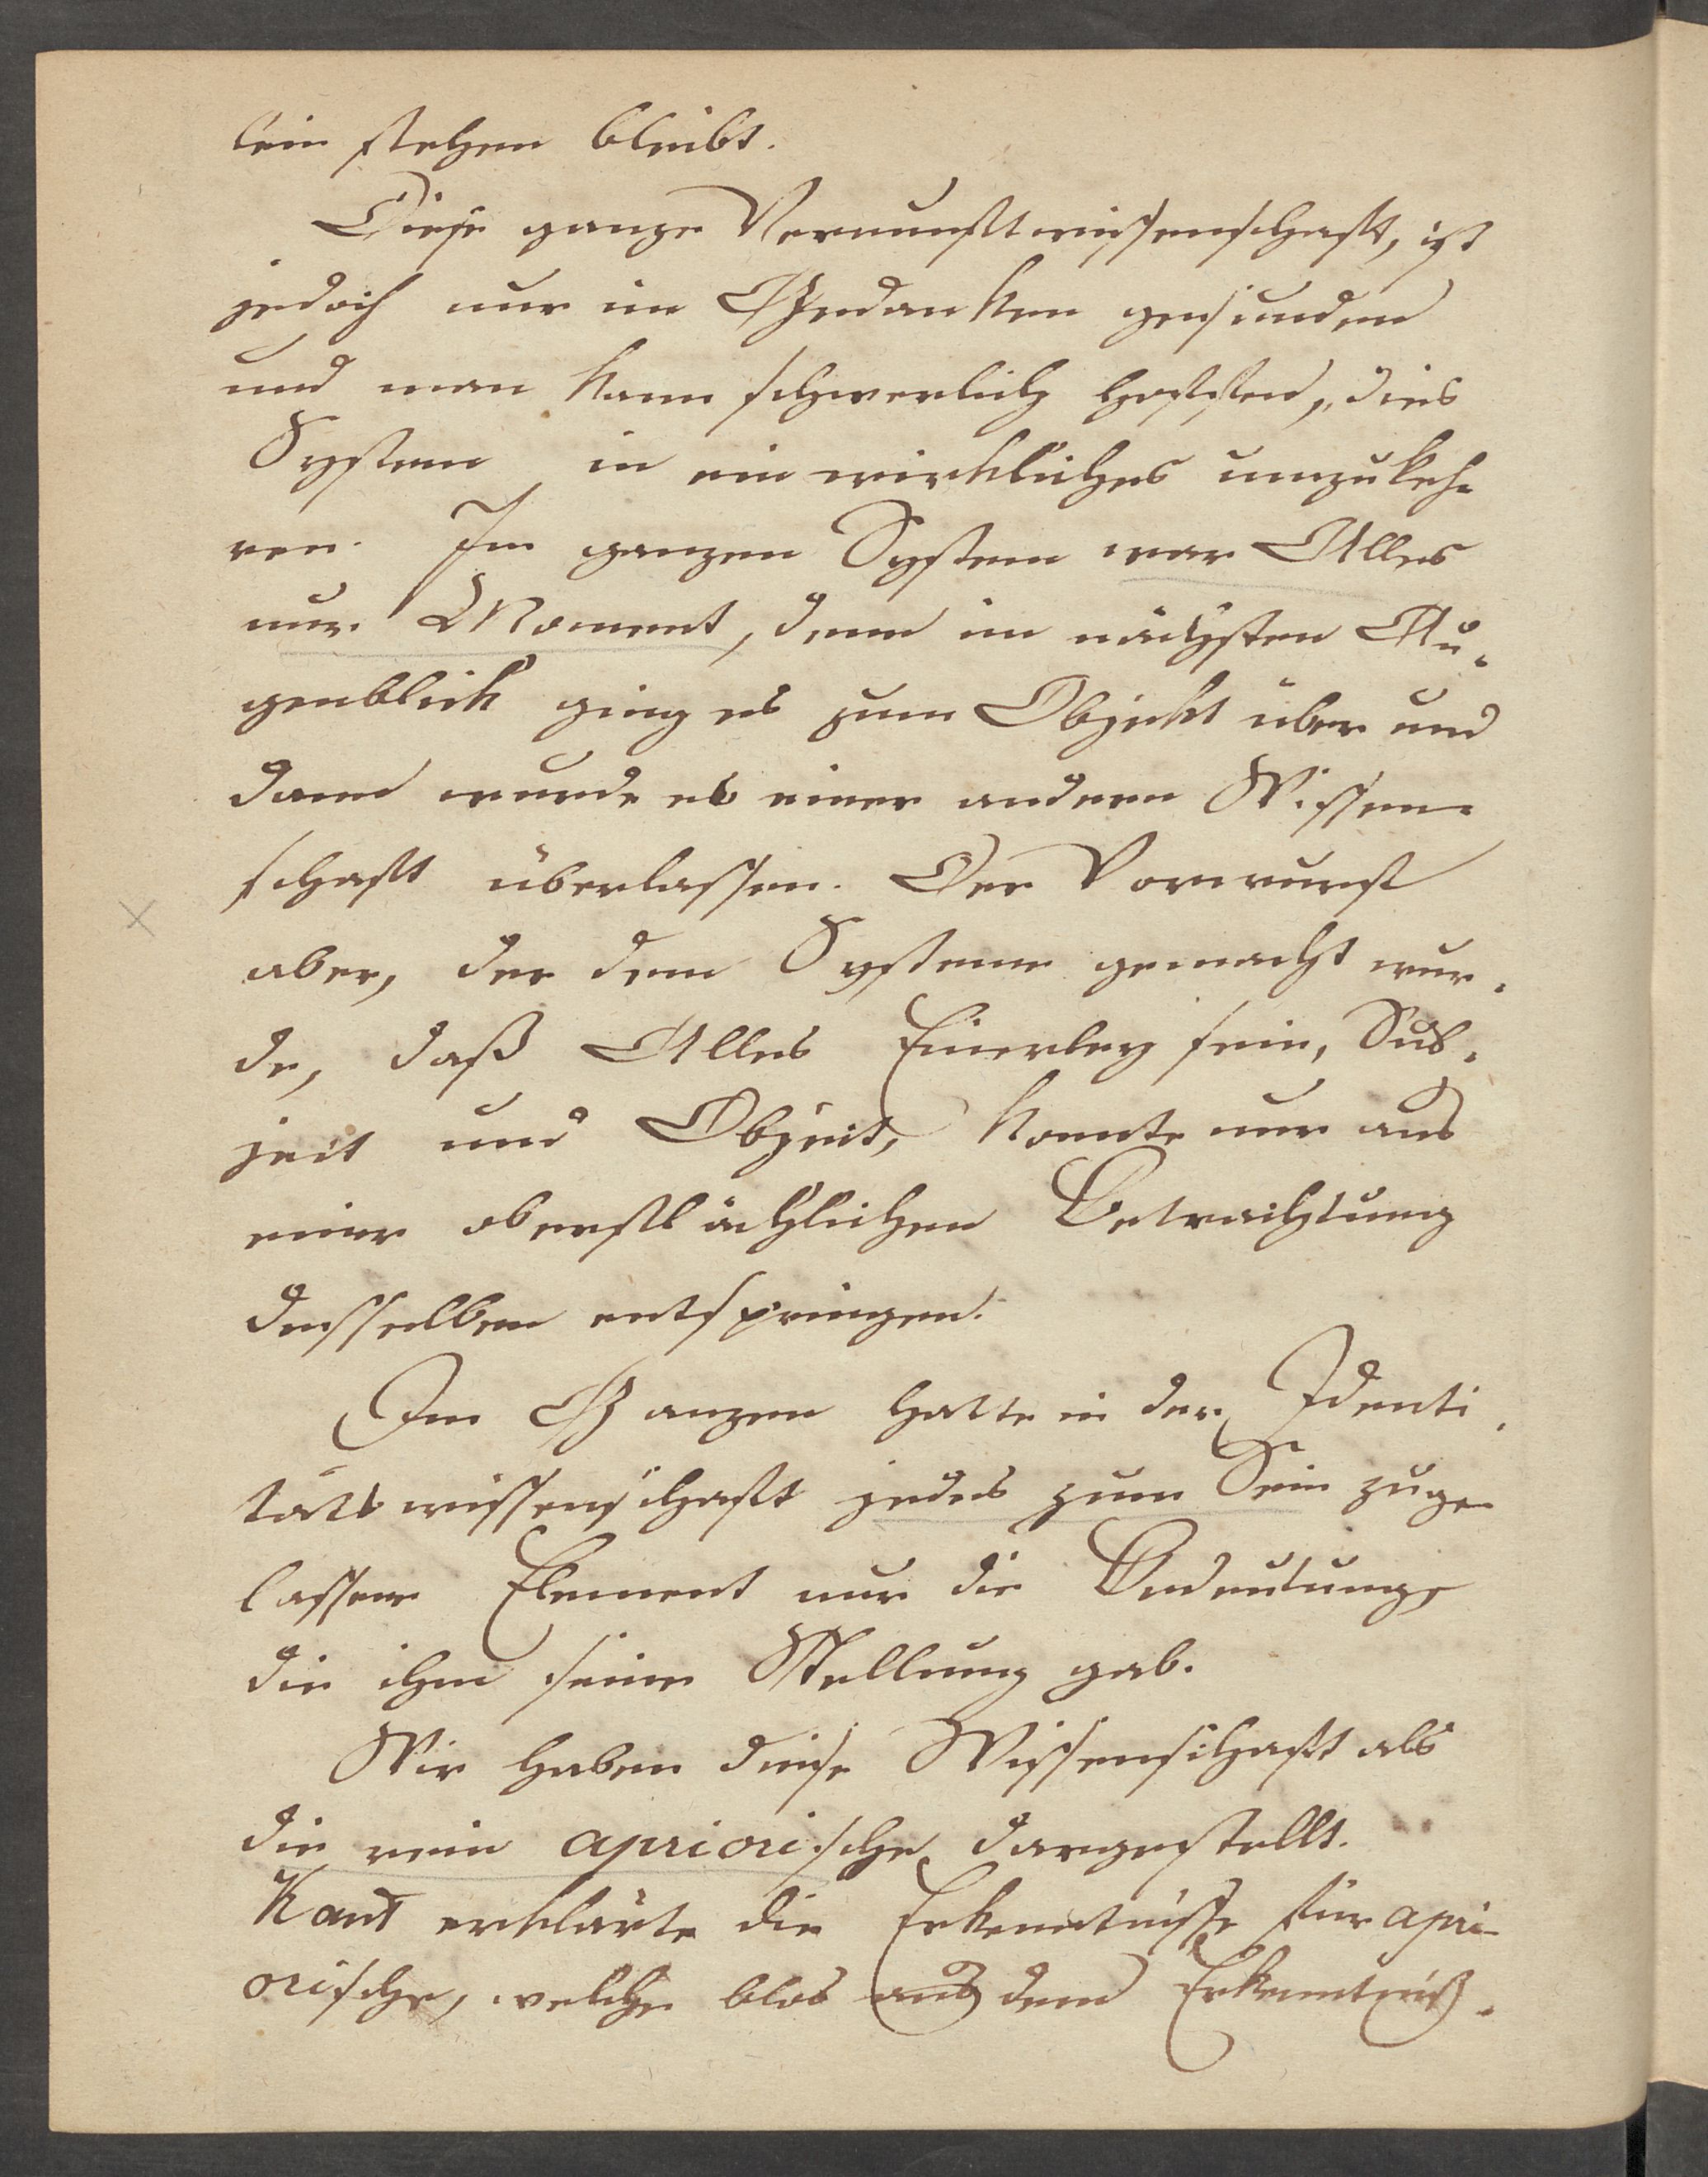 lein stehen bleibt.
Diese ganze Vernunftwissenschaft, ist
jedoch nur im Gedanken gefunden
und man kann schwerlich hoffen, dies
System in ein wirkliches umzukeh-
ren. Im ganzen System war Alles
nur Moment, denn im nächsten Au-
genblick ging es zum Objekt über und
dann wurde es einer andern Wissen-
schaft überlassen. Der Vorwurf
aber, der dem Systeme gemacht wur-
de, daß Alles Einerley sein, Sub-
ject und Object, konnte nur aus
einer oberflächlichen Betrachtung
desselben entspringen.
Im Ganzen hatte in der Identi-
tätswissenschaft jedes zum Sein zuge-
lassene Element nur die Bedeutung,
die ihm seine Stellung gab.
Wir haben diese Wissenschaft als
die rein apriorische dargestellt.
Kant erklärte die Erkenntnisse für apri-
orische, welche blos aus dem Erkenntniß-